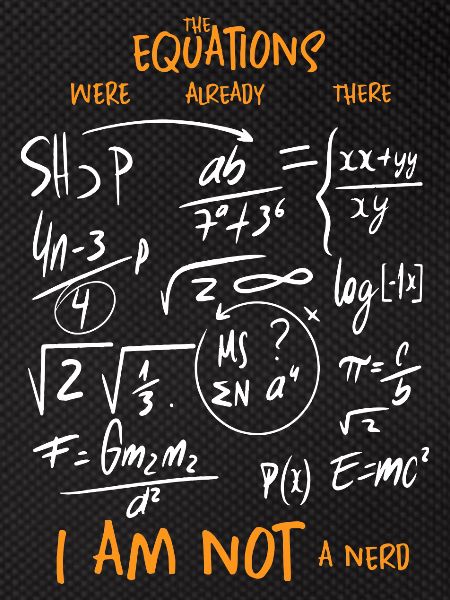 THE
EQUATIONS
WERE ALREADY THERE
SH⊃P
ab / 7⁹+3⁶ = { xx+yy / xy
4n-3 / 4 p
√2 ∞
log[-1x]
√2 √1/3 .
MS ?
ΣN a⁴
x
π = c/b
√2
F = Gm₂m₂ / d²
P(x) E=mc²
I AM NOT A NERD